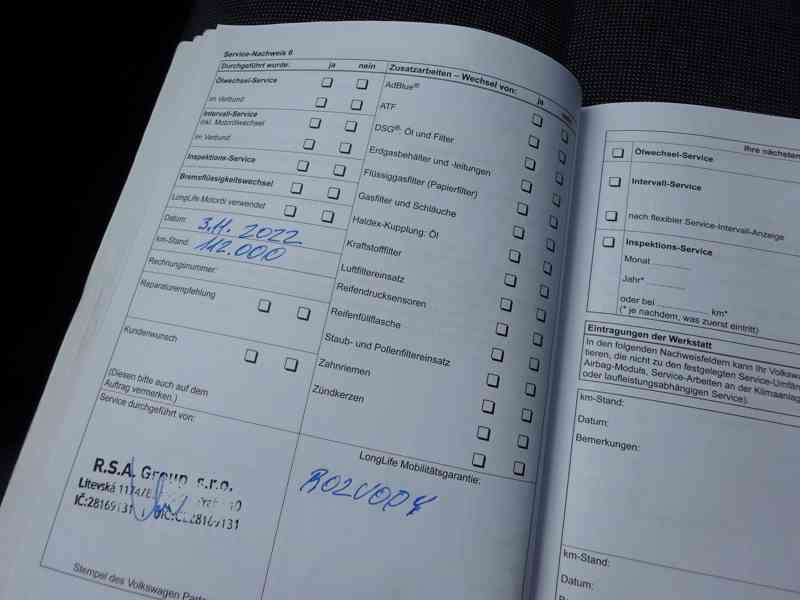 Service-Nachweis 6
Durchgeführt wurde: ja nein
Ölwechsel-Service
im Verbund
Intervall-Service
inkl. Motorölwechsel
im Verbund
Inspektions-Service
Bremsflüssigkeitswechsel
LongLife Motoröl verwendet
Datum: 3.11. 2022
km-Stand: 112.000
Rechnungsnummer:
Reparaturempfehlung
Kundenwunsch
(Diesen bitte auch auf dem
Auftrag vermerken.)
Service durchgeführt von:
R.S.A. Group s.r.o.
Litevská 1174/8
IČ:28169131
Stempel des Volkswagen
Zusatzarbeiten – Wechsel von: ja
AdBlue®
ATF
DSG®- Öl und Filter
Erdgasbehälter und -leitungen
Flüssiggasfilter (Papierfilter)
Gasfilter und Schläuche
Haldex-Kupplung: Öl
Kraftstofffilter
Luftfiltereinsatz
Reifendrucksensoren
Reifenfüllflasche
Staub- und Pollenfiltereinsatz
Zahnriemen
Zündkerzen
LongLife Mobilitätsgarantie:
ROZVODY
Ihre nächsten
Ölwechsel-Service
Intervall-Service
nach flexibler Service-Intervall-Anzeige
Inspektions-Service
Monat
Jahr*
oder bei km*
(* je nachdem, was zuerst eintritt)
Eintragungen der Werkstatt
In den folgenden Nachweisfeldern kann Ihr
tieren, die nicht zu den festgelegten
Airbag-Moduls, Service-Arbeiten an der
oder laufleistungsabhängigen Service).
km-Stand:
Datum:
Bemerkungen:
km-Stand:
Datum: